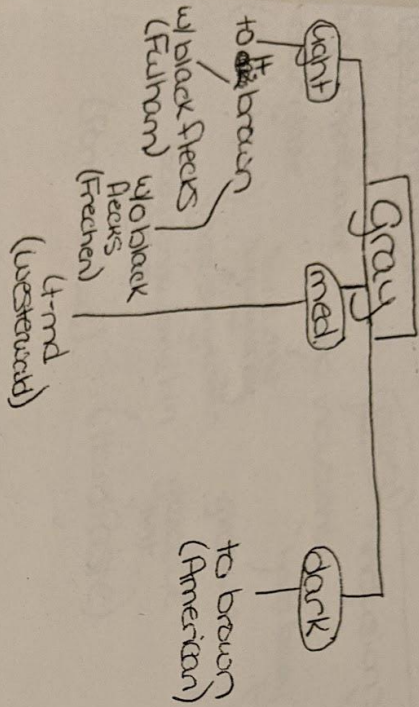 Gray
light
med
dark
to lt brown
w/ black flecks
(Fulham)
w/o black
flecks
(Frechen)
lt-md
(Westerwald)
to brown
(American)